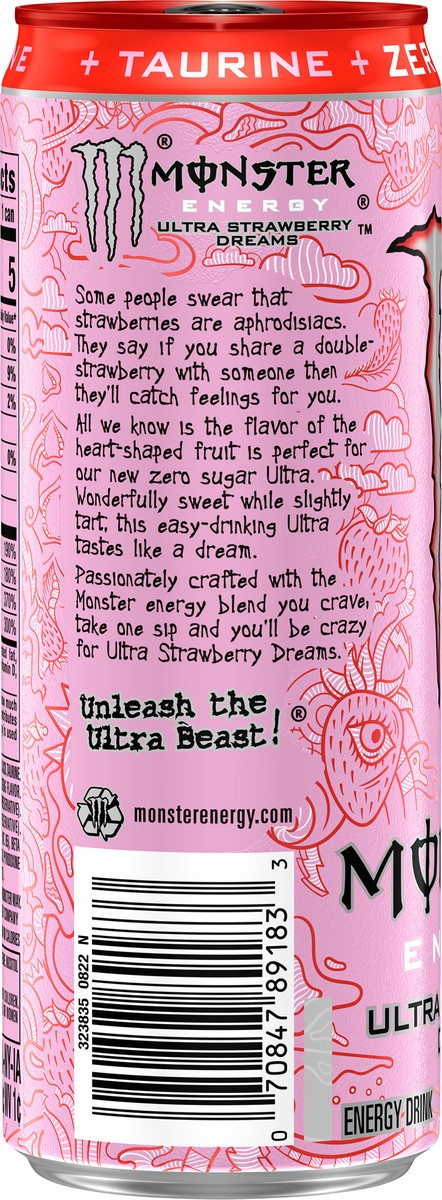 + TAURINE + ZER
MONSTER
ENERGY
ULTRA STRAWBERRY
DREAMS™
Some people swear that
strawberries are aphrodisiacs.
They say if you share a double-
strawberry with someone then
they'll catch feelings for you.
All we know is the flavor of the
heart-shaped fruit is perfect for
our new zero sugar Ultra.
Wonderfully sweet while slightly
tart, this easy-drinking Ultra
tastes like a dream.
Passionately crafted with the
Monster energy blend you crave,
take one sip and you'll be crazy
for Ultra Strawberry Dreams.
Unleash the
Ultra Beast!®
monsterenergy.com
323835 0822 N
0 70847 89183 3
cts
1 can
5
0%
9%
2%
0%
190%
180%
370%
300%
MO
EN
ULTRA
ENERGY DRINK